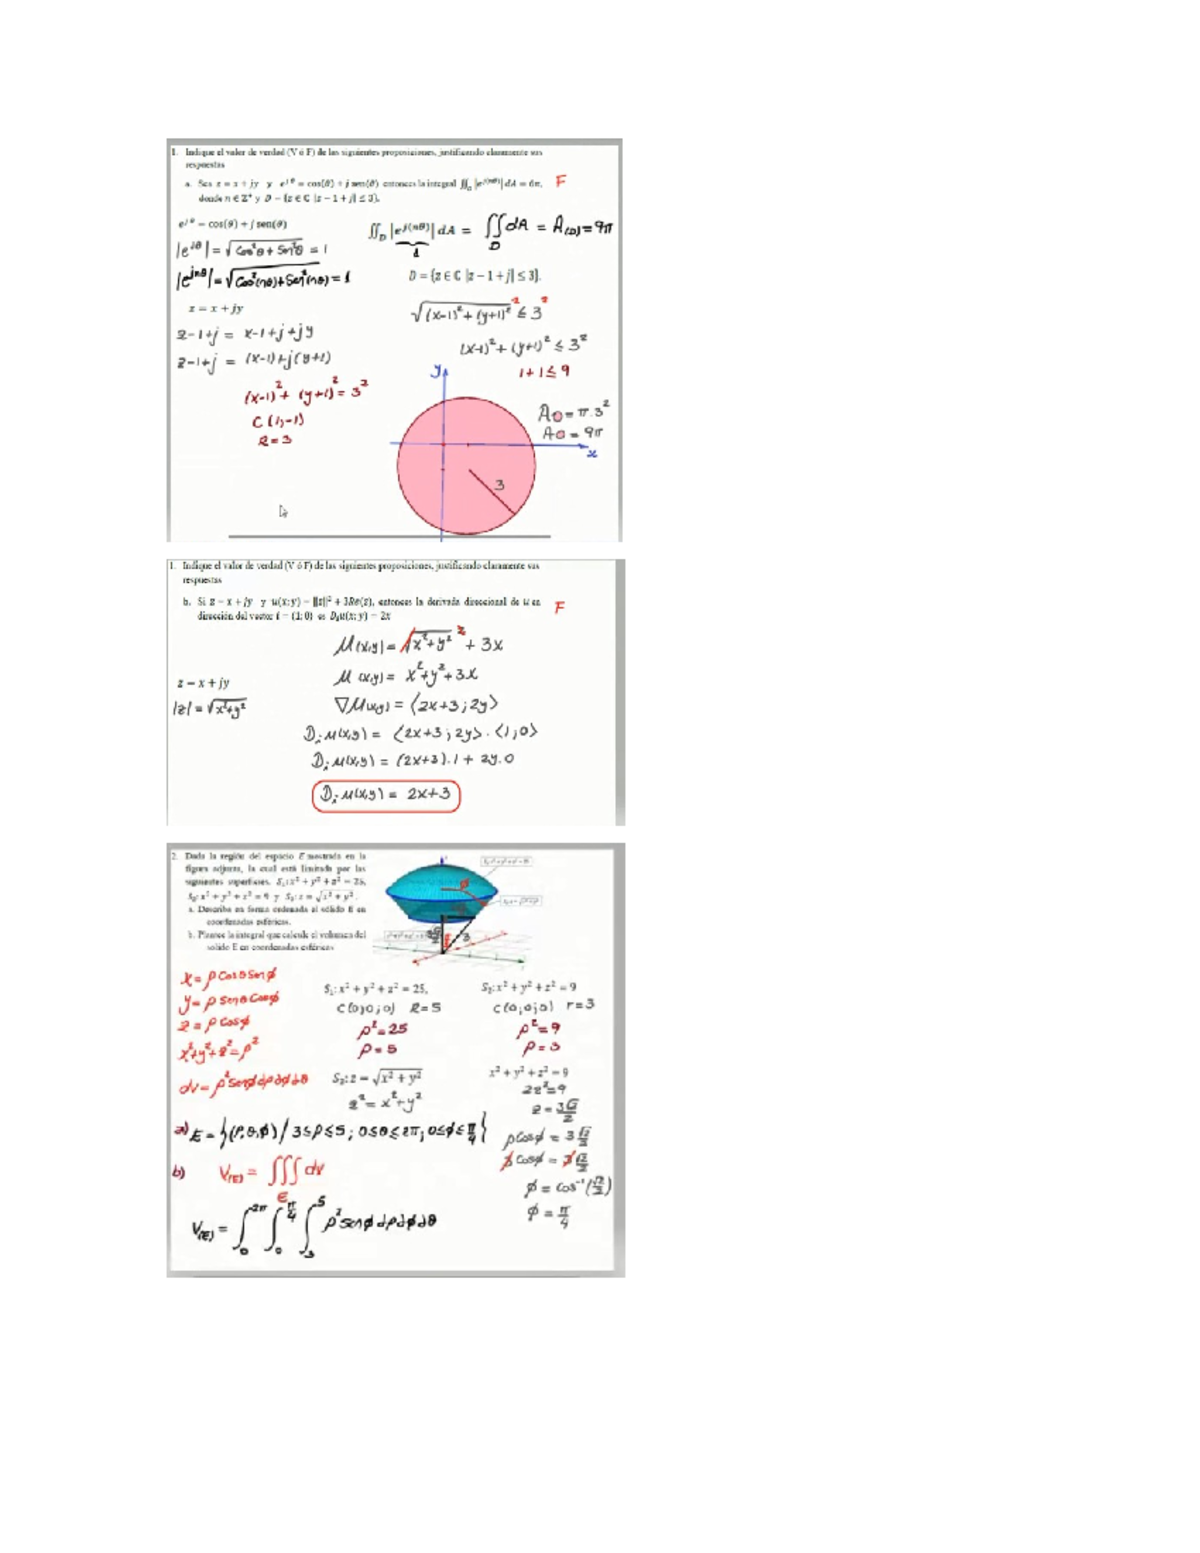 1. Indique el valor de verdad (V ó F) de las siguientes proposiciones, justificando claramente sus
respuestas
a. Sea z = x + jy y e^{jθ} = cos(θ) + j sen(θ) entonces la integral ∬_D |e^{j(nθ)}| dA = 6π, F
donde n ∈ Z⁺ y D = {z ∈ C |z − 1 + j| ≤ 3}.
e^{jθ} = cos(θ) + j sen(θ)
|e^{jθ}| = √(Cos²θ + Sen²θ) = 1
|e^{jnθ}| = √(Cos²(nθ) + Sen²(nθ)) = 1
z = x + jy
z-1+j = x-1+j+jy
z-1+j = (x-1)+j(y+1)
(x-1)² + (y+1)² = 3²
C(1,-1)
R=3
∬_D |e^{j(nθ)}| dA = ∬_D dA = A_(D) = 9π
1
D = {z ∈ C |z − 1 + j| ≤ 3}.
√((x-1)² + (y+1)²)² ≤ 3²
(x-1)² + (y+1)² ≤ 3²
1+1 ≤ 9
y
A = π.3²
A = 9π
x
3
1. Indique el valor de verdad (V ó F) de las siguientes proposiciones, justificando claramente sus
respuestas
b. Si z = x + jy y u(x; y) = ||z||² + 3Re(z), entonces la derivada direccional de u en F
dirección del vector i = (1; 0) es D_i u(x; y) = 2x
μ(x,y) = √(x²+y²)² + 3x
μ(x,y) = x²+y²+3x
z = x + jy
|z| = √(x²+y²)
∇μ(x,y) = ⟨2x+3 ; 2y⟩
D_i μ(x,y) = ⟨2x+3 ; 2y⟩ . ⟨1 ; 0⟩
D_i μ(x,y) = (2x+3).1 + 2y.0
D_i μ(x,y) = 2x+3
2. Dada la región del espacio E mostrada en la
figura adjunta, la cual está limitada por las
siguientes superficies. S₁: x² + y² + z² = 25,
S₂: x² + y² + z² = 9 y S₃: z = √(x² + y²).
a. Describa en forma ordenada al sólido E en
coordenadas esféricas.
b. Plantee la integral que calcule el volumen del
sólido E en coordenadas esféricas
x = ρ Cosθ Senϕ
y = ρ Senθ Cosϕ
z = ρ Cosϕ
x²+y²+z² = ρ²
dv = ρ² senϕ dρ dϕ dθ
S₁: x² + y² + z² = 25,
C(0,0,0) R=5
ρ² = 25
ρ = 5
S₃: z = √(x² + y²)
z² = x²+y²
S₂: x² + y² + z² = 9
C(0,0,0) r=3
ρ² = 9
ρ = 3
x² + y² + z² = 9
2z² = 9
z = 3√2/2
ρCosϕ = 3√2/2
3Cosϕ = 3√2/2
ϕ = cos⁻¹(√2/2)
ϕ = π/4
a) E = {(ρ,θ,ϕ) / 3≤ρ≤5 ; 0≤θ≤2π ; 0≤ϕ≤π/4}
b) V_(E) = ∭_E dv
V_(E) = ∫_0^{2π} ∫_0^{π/4} ∫_3^5 ρ² senϕ dρ dϕ dθ